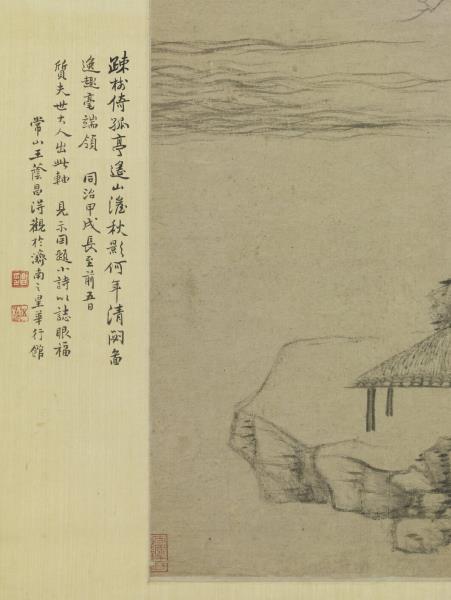 疎樹倚孤亭遙山澹秋影何年清閟啚
逸趣毫端領　同治甲戌長至前五日
質夫世大人出此軸　見示因題小詩以誌眼福
常山王蔭昌得觀於濟南之皇華行館